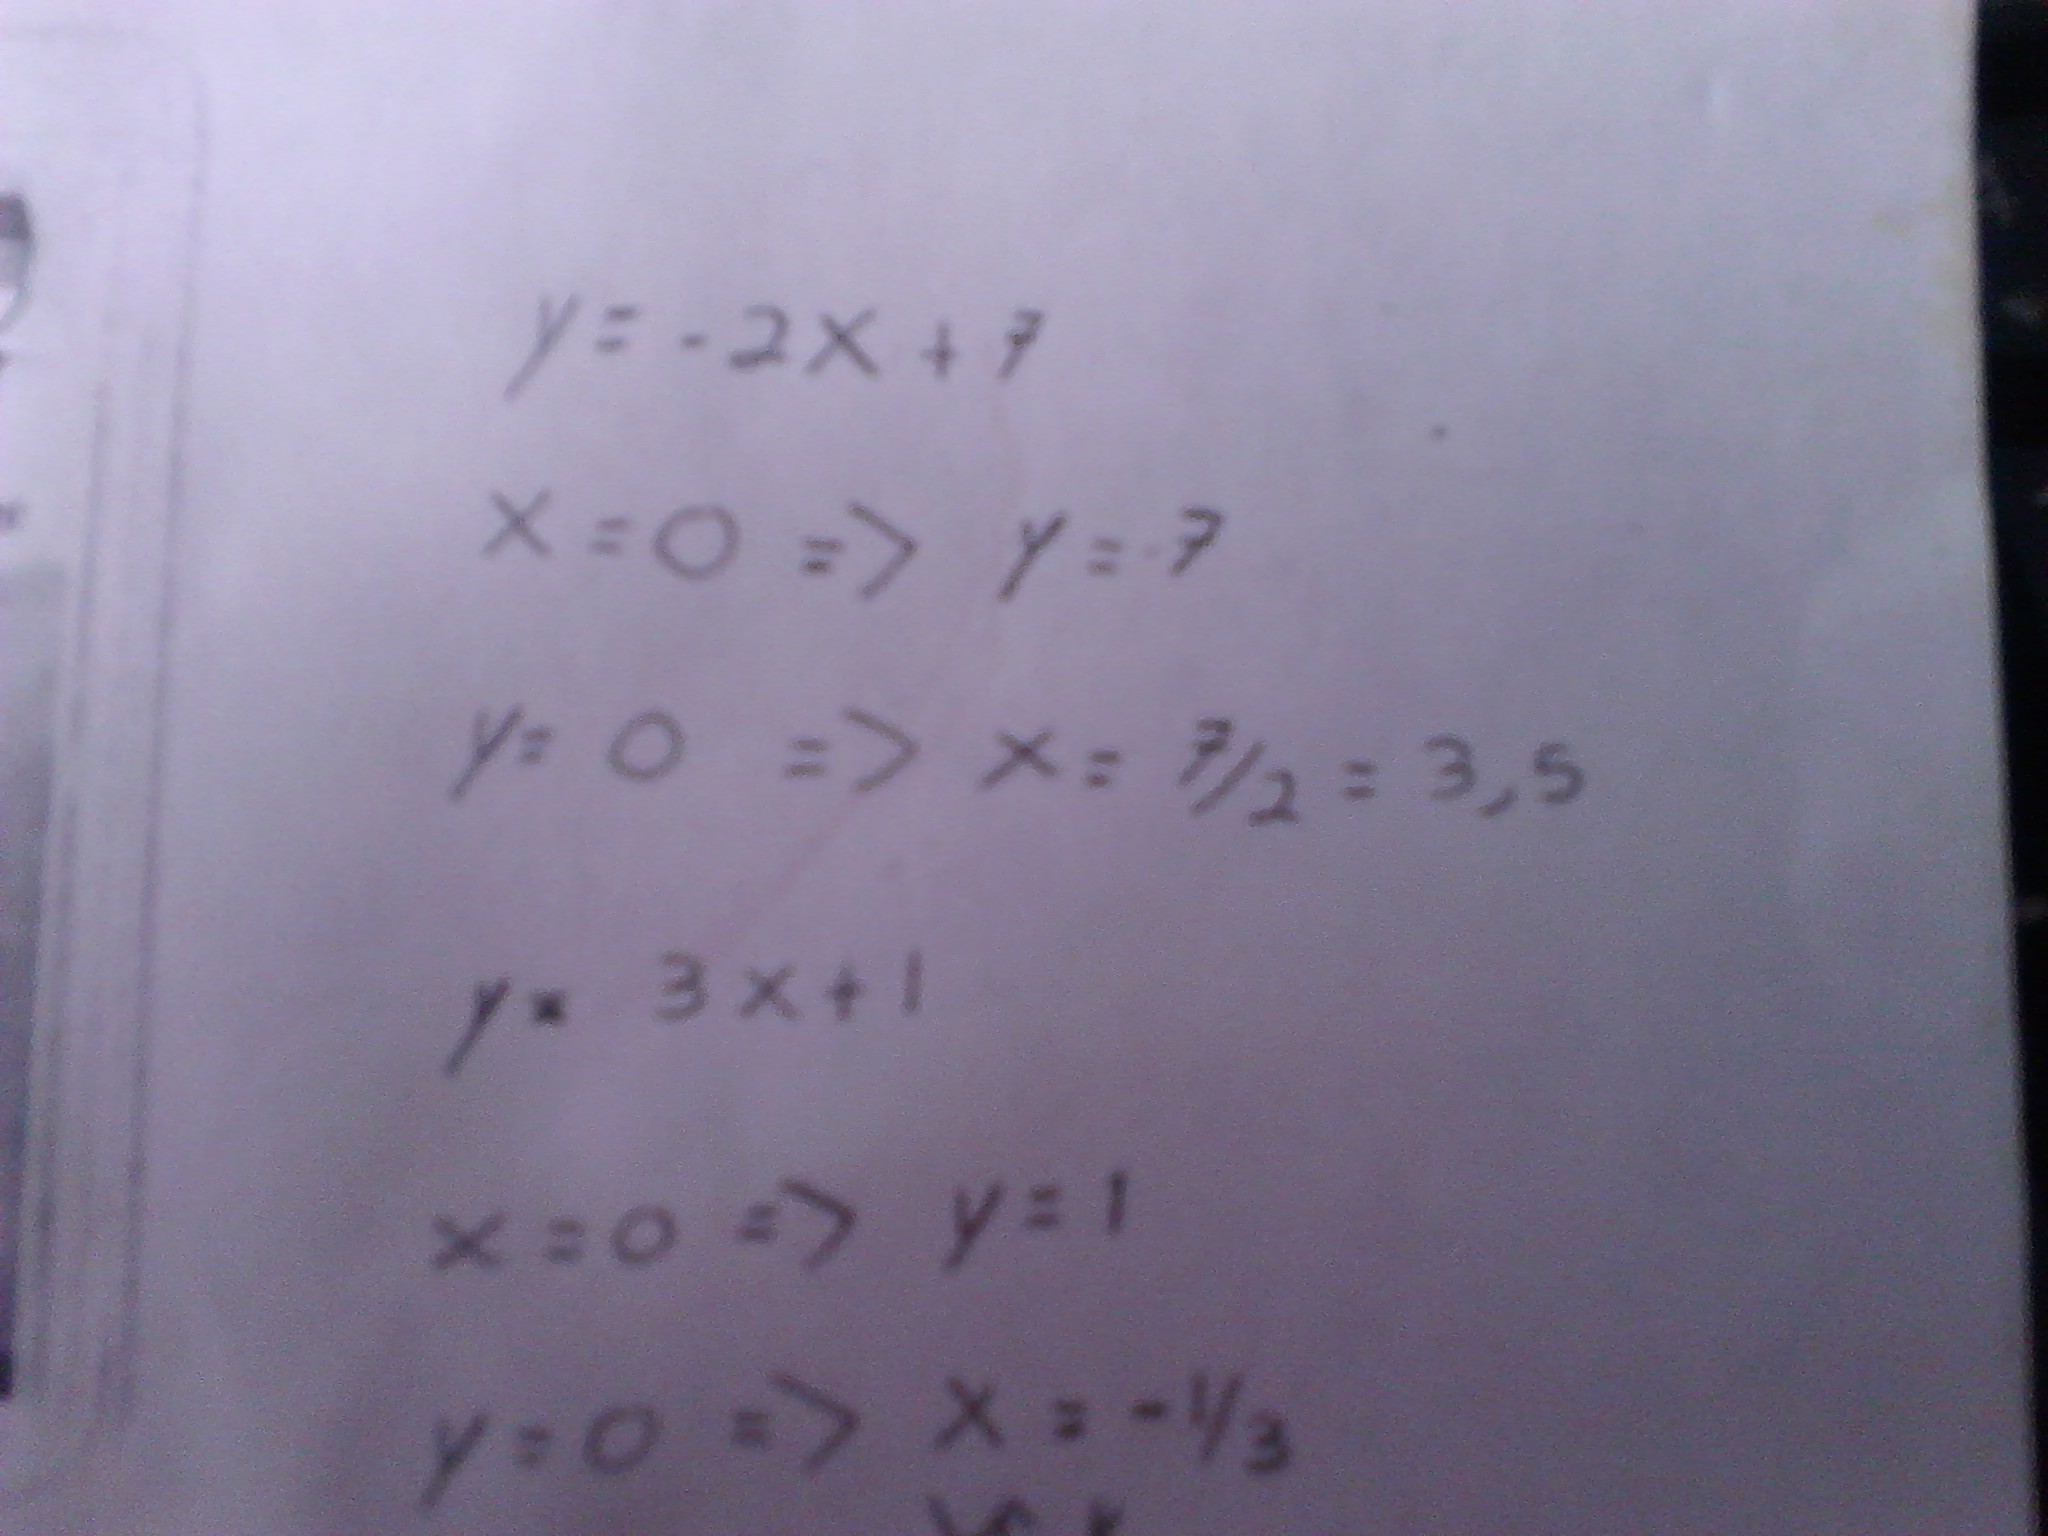 y = -2x + 7
x = 0 => y = 7
y = 0 => x = 7/2 = 3,5
y = 3x + 1
x = 0 => y = 1
y = 0 => x = -1/3